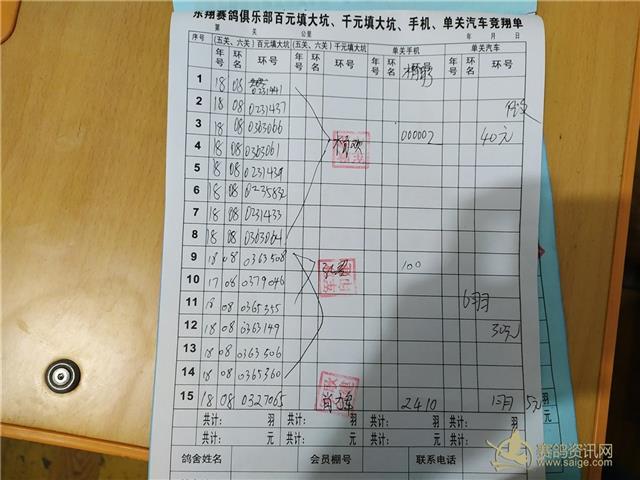 东翔赛鸽俱乐部百元填大坑、千元填大坑、手机、单关汽车竞翔单
第 关 公里 年 月 日
序号 (五关、六关)百元填大坑 (五关、六关)千元填大坑 单关手机 单关汽车
年号 环名 环号 年号 环名 环号 年号 环名 环号 年号 环名 环号
1 18 08 0231441
2 18 08 0231437
3 18 08 0303066 000002 40元
4 18 08 0303061
5 18 08 0231439
6 18 08 0235832
7 18 08 0231433
8 18 08 0303064
9 18 08 0363508 100
10 17 08 0379046
11 18 08 0365355 6羽
12 18 08 0363149 30元
13 18 08 0363506
14 18 08 0365360
15 18 08 0327065 2410 5元
共计： 羽 共计： 羽 共计： 羽 共计： 羽
共计： 元 共计： 元 共计： 元 共计： 元
鸽舍姓名 会员棚号 联系电话
赛鸽资讯网
www.saige.com